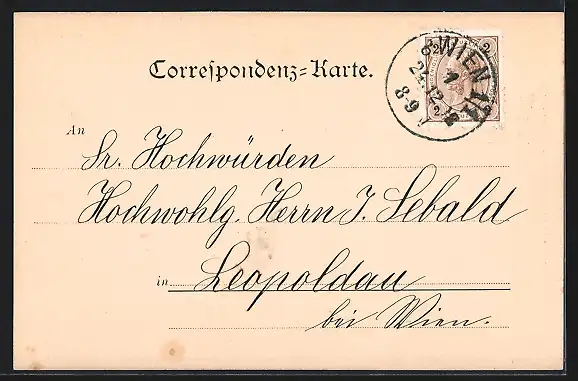 Correspondenz=Karte.
WIEN
8-9
2 2
2
An
Sr. Hochwürden
Hochwohlg. Herrn J. Sebald
in Leopoldau
bei Wien.